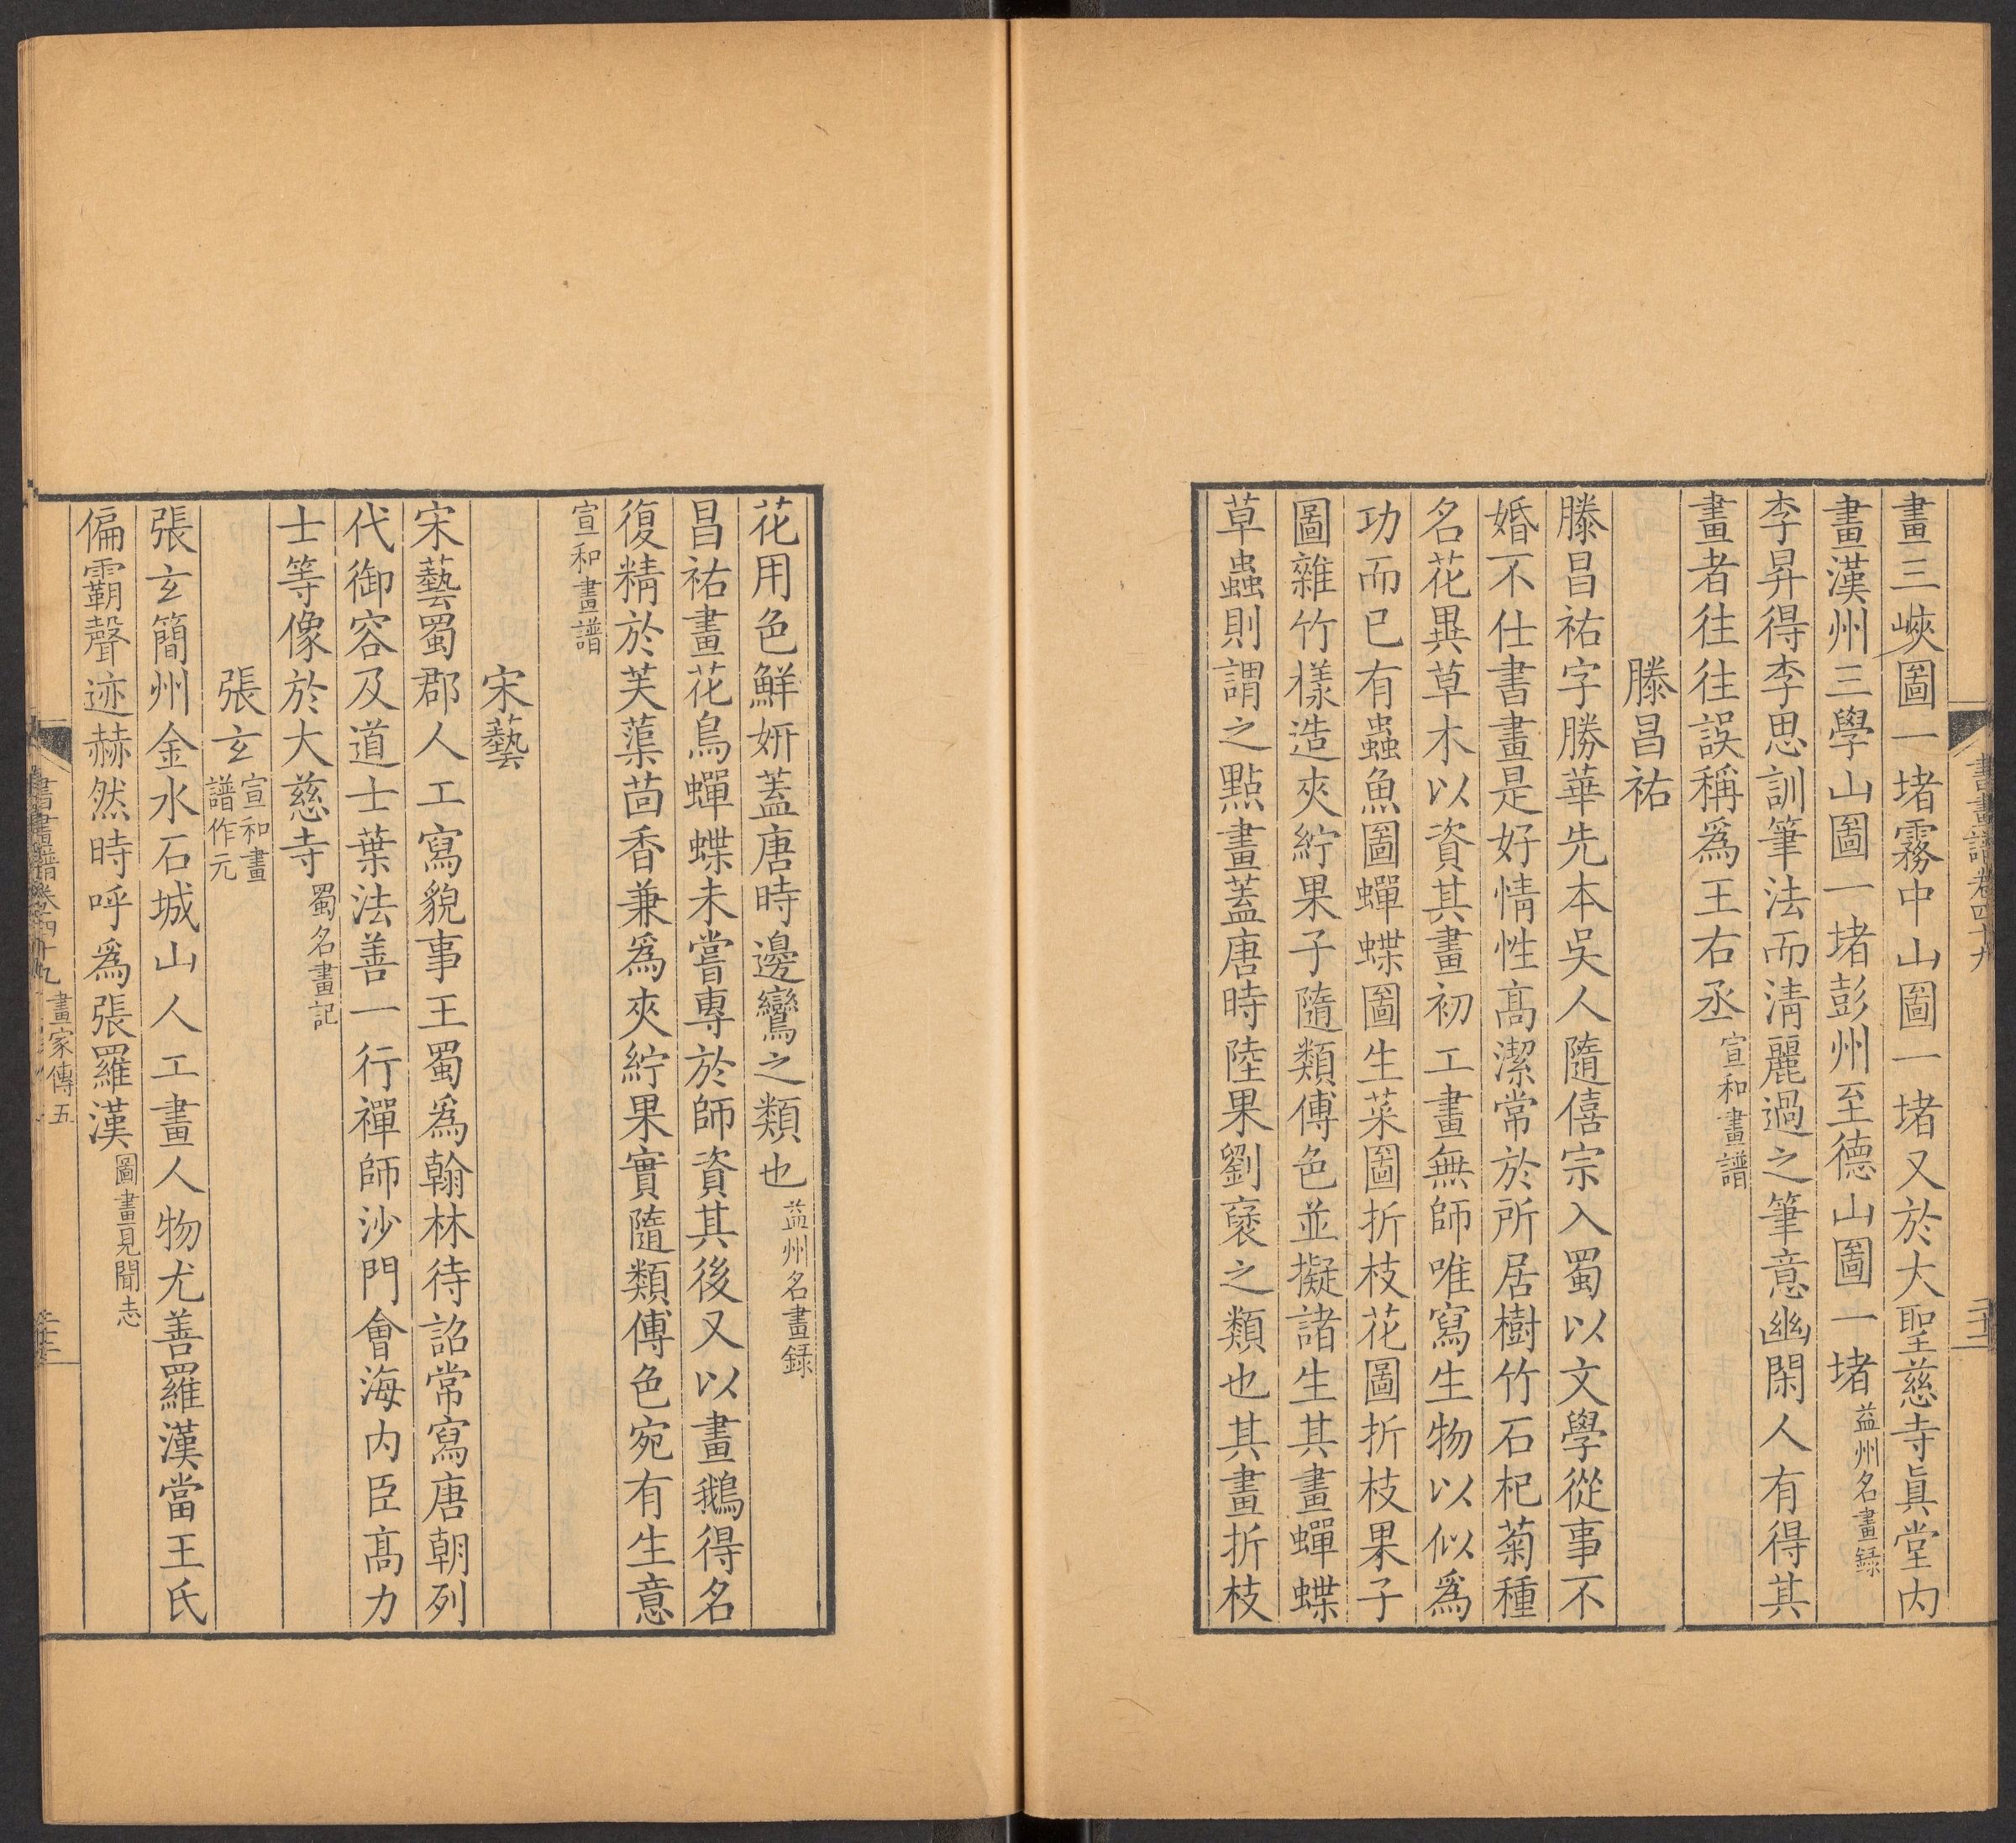 書畫譜卷四十九
畫三峽圖一堵霧中山圖一堵又於大聖慈寺眞堂內
畫漢州三學山圖一堵彭州至德山圖一堵益州名畫録
李昇得李思訓筆法而淸麗過之筆意幽閑人有得其
畫者往往誤稱爲王右丞宣和畫譜
滕昌祐
滕昌祐字勝華先本吳人隨僖宗入蜀以文學從事不
婚不仕書畫是好情性高潔常於所居樹竹石杞菊種
名花異草木以資其畫初工畫無師唯寫生物以似爲
功而已有蟲魚圖蟬蝶圖生菜圖折枝花圖折枝果子
圖雜竹樣造夾紵果子隨類傅色並擬諸生其畫蟬蝶
草蟲則謂之點畫蓋唐時陸果劉褒之類也其畫折枝
花用色鮮姸蓋唐時邊鸞之類也益州名畫録
昌祐畫花鳥蟬蝶未嘗專於師資其後又以畫鵝得名
復精於芙蕖茴香兼爲夾紵果實隨類傅色宛有生意
宣和畫譜
宋藝
宋藝蜀郡人工寫貌事王蜀爲翰林待詔常寫唐朝列
代御容及道士葉法善一行禪師沙門會海內臣高力
士等像於大慈寺蜀名畫記
張玄宣和畫
譜作元
張玄簡州金水石城山人工畫人物尤善羅漢當王氏
偏霸聲迹赫然時呼爲張羅漢圖畫見聞志
書畫譜卷四十九 畫家傳五